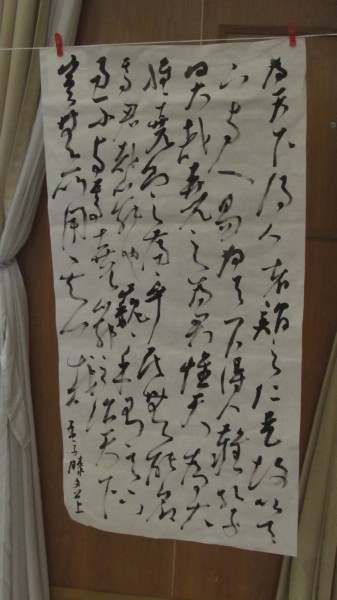 為天下得人者謂之仁是故以天
下與人易為天下得人難孔子
曰大哉堯之為君惟天為大
惟堯則之蕩々乎民無能名
焉君哉舜也巍々乎有天下
而不與焉堯舜之治天下
豈無所用其心哉 孟子滕文公上